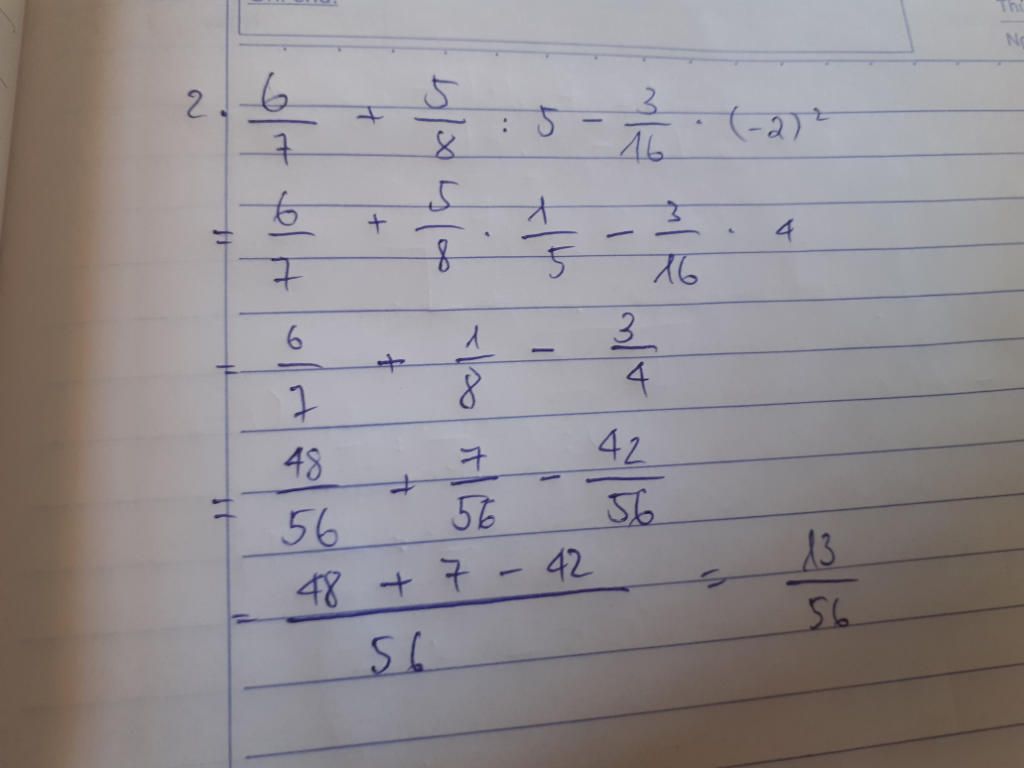 2. 6/7 + 5/8 : 5 - 3/16 · (-2)²
= 6/7 + 5/8 · 1/5 - 3/16 · 4
= 6/7 + 1/8 - 3/4
= 48/56 + 7/56 - 42/56
= (48 + 7 - 42)/56 = 13/56